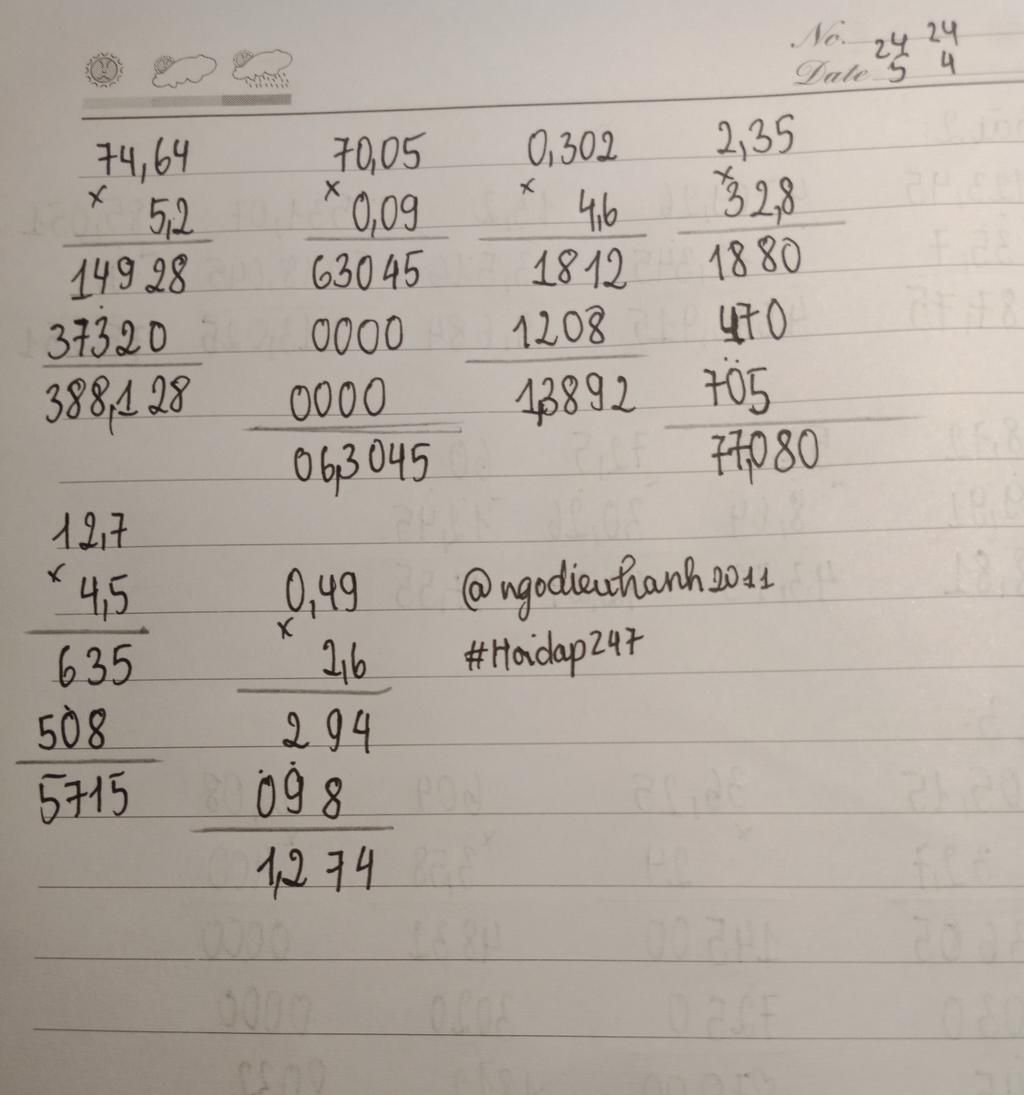 No. 24 24
Date 5 4
74,64 70,05 0,302 2,35
x 5,2 x 0,09 x 4,6 x 32,8
14928 63045 1812 1880
37320 0000 1208 470
388,128 0000 1,3892 705
06,3045 77,080
12,7
x 4,5 0,49 @ngodieuthanh2011
x 2,6 #Hoidap247
635
508 294
5715 098
1,274